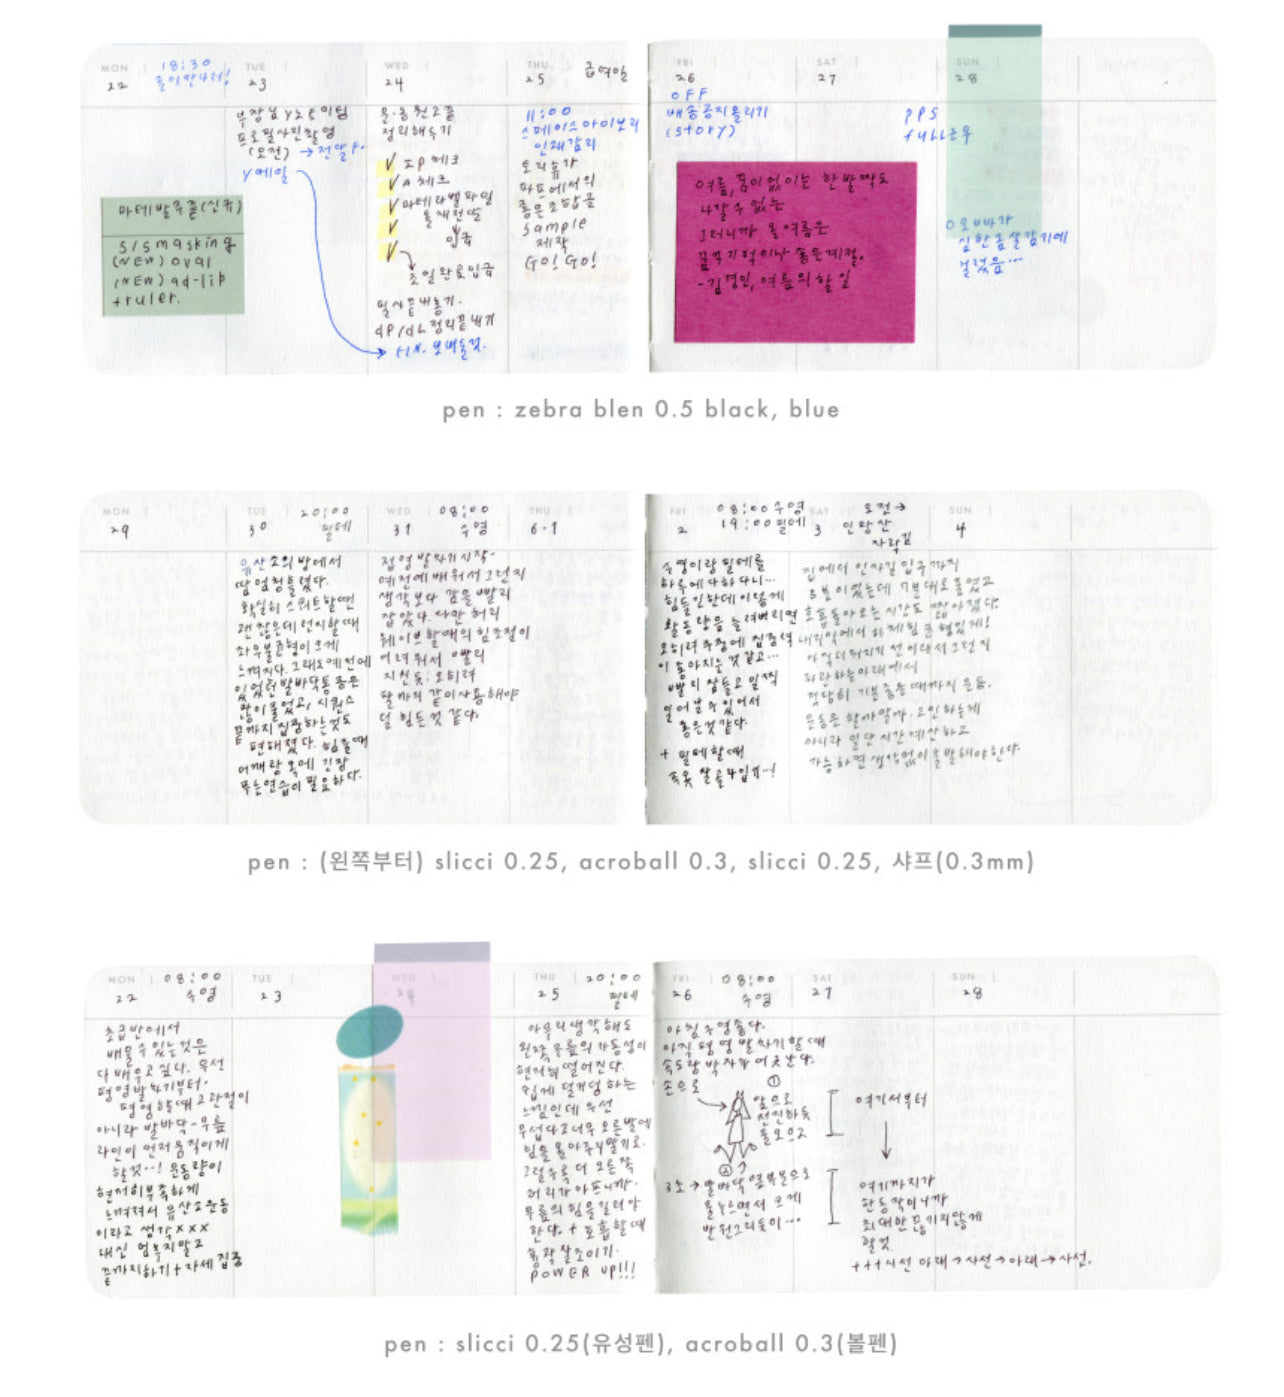 MON
22
18:30
TUE
23
부장님 Y2 & 이팀
프로필사진촬영
(오전) → 전달 F.
Y메일
마테발주줄(신규)
S/S masking
(NEW) oval
(NEW) ad-lip
+ruler.
WED
24
정리해두기
IP 체크
A 체크
마테라벨파일
입금
조일완료입금
필사끝내놓기.
dp/dh 정리끝내기
보내둘것.
THU
25
급여일
11:00
스페이스아이보리
인쇄감리
오리휴가
파프에서의
좋은조합글
sample
제작
GO! GO!
FRI
26
OFF
배송공지올리기
(story)
SAT
27
PPS
full근무
SUN
28
오빠가
심한 몸살감기에
걸렸음...
여름, 품이 없이는 한 발짝도
나갈 수 없는
그러니까 올 여름은
꿈꾸기 좋은 계절.
-김경인, 여름의 할 일
pen : zebra blen 0.5 black, blue
MON
29
TUE
30
20:00
필테
유산소의 방에서
땀 엄청 흘렸다.
확실히 스쿼트할땐
괜찮은데 런지할때
좌우불균형이 크게
느껴진다. 그래도 예전에
있었던 발바닥통증은
많이 줄었고, 시퀀스
끝까지 집중하는것도
편해졌다. 힘들때
어깨랑 목에 긴장
푸는연습이 필요하다.
WED
31
08:00
수영
접영 발차기 시작-
예전에 배워서 그런지
생각보다 감을 빨리
잡았다. 다만 허리
웨이브할때의 힘 조절이
어려워서 빨리
지친듯. 오히려
팔까지 같이 사용해야
덜 힘든것 같다.
THU
6.1
FRI
2
08:00 수영
19:00 필테
수영이랑 필테를
하루에 다하다니...
힘들긴한데 이렇게
활동량을 늘려버리면
오히려 투정에 집중력
이 좋아지는것 같고...
빨리 잠들고 일찍
일어날 수 있어서
좋은것 같다.
+ 필테할때
속옷 잘 골라입기..!
SAT
3
오전→
인왕산
자락길
집에서 인사길 입구까지
호흡 돌아오는 시간도 짧아졌다.
아직 더워지기 전이라서 그런지
파란하늘아래에서
적당히 기분 좋을때까지 운동.
운동을 할까말까 고민하는게
아니라 일단 시간 계산하고
가능하면 생각없이 출발해야한다.
SUN
4
pen : (왼쪽부터) slicci 0.25, acroball 0.3, slicci 0.25, 샤프(0.3mm)
MON
22
08:00
수영
초급반에서
배울수 있는것은
다 배우고 싶다. 우선
평영발차기부터.
평영할때 고관절이
아니라 발바닥-무릎
라인이 먼저 움직이게
할것..! 운동량이
현저히 부족하게
느껴져서 유산소운동
이라고 생각xxx
대신 멈추지말고
끝까지하기 + 자세 집중
TUE
23
WED
24
THU
25
20:00
필테
아무리 생각해도
왼쪽 무릎의 가동성이
현저히 떨어진다.
쉽게 덜커덩 하는
느낌인데 우선
무섭다고 너무 오른발에
힘을 몰아주지말기로.
그럴수록 더 오른쪽
허리가 아프니까.
무릎의 힘을 길러야
한다. + 호흡할때
흉곽 잘 조이기.
POWER UP!!!
FRI
26
08:00
수영
아침수영좋다.
아직 평영 발차기할때
속도랑 박자가 어긋난다.
손으로
①
앞으로
전진하듯
몸모으고
②
3초 → 발바닥 옆부분으로
물누르면서 크게
반원그리듯이...
SAT
27
여기서부터
여기까지가
한동작이니까
최대한 끊기지않게
할것.
+++시선 아래→사선→아래→사선.
SUN
28
pen : slicci 0.25(유성펜), acroball 0.3(볼펜)